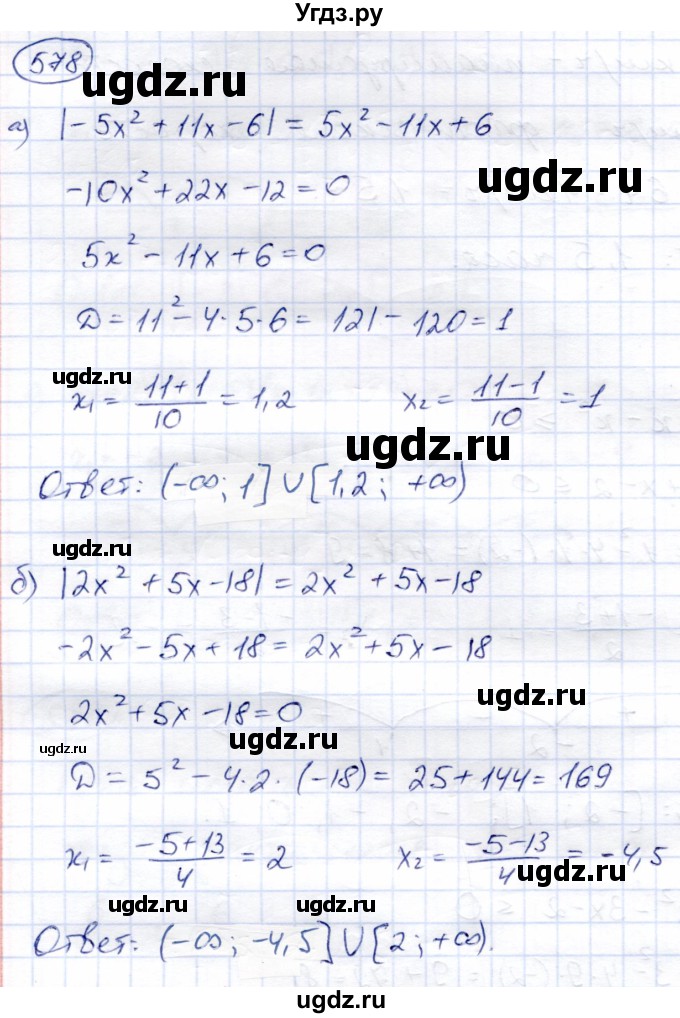 Угдз.ру
578
ugdz.ru
а) |-5x² + 11x - 6| = 5x² - 11x + 6
ugdz.ru
-10x² + 22x - 12 = 0
5x² - 11x + 6 = 0
Д = 11² - 4·5·6 = 121 - 120 = 1
ugdz.ru
x₁ = (11+1)/10 = 1,2    x₂ = (11-1)/10 = 1
ugdz.ru
Ответ: (-∞; 1] ∪ [1,2; +∞)
ugdz.ru
б) |2x² + 5x - 18| = 2x² + 5x - 18
-2x² - 5x + 18 = 2x² + 5x - 18
ugdz.ru
2x² + 5x - 18 = 0
ugdz.ru
ugdz.ru
Д = 5² - 4·2·(-18) = 25 + 144 = 169
x₁ = (-5+13)/4 = 2    x₂ = (-5-13)/4 = -4,5
ugdz.ru
ugdz.ru
ugdz.ru
Ответ: (-∞; -4,5] ∪ [2; +∞).
ugdz.ru